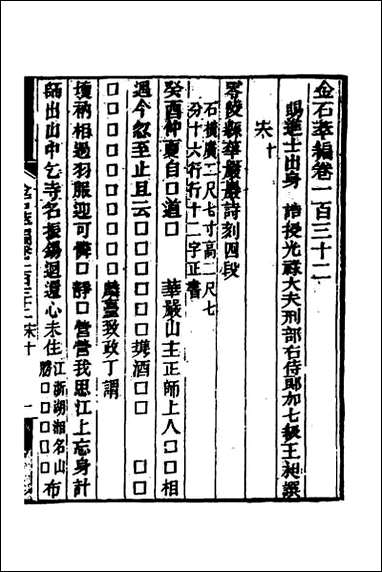 金石萃編卷一百三十二
賜進士出身 誥授光祿大夫刑部右侍郎加七級王昶譔
宋十
零陵縣華嚴巖詩刻四段
石橫廣二尺七寸高二尺七
分十六行行十二字正書
癸酉仲夏自□道□ 華嚴山主正師上人□□相
過今忽至止且云□□□□□携酒□□ □□
□□□□□□□□□麟臺致政丁謂
壞衲相過羽服迎可憐□靜□營營我思江上忘身計
師出山中乞寺名振錫迴還心未住江浙湖湘名山
勝□□□□□布
金石萃編卷一百三十二宋十 一